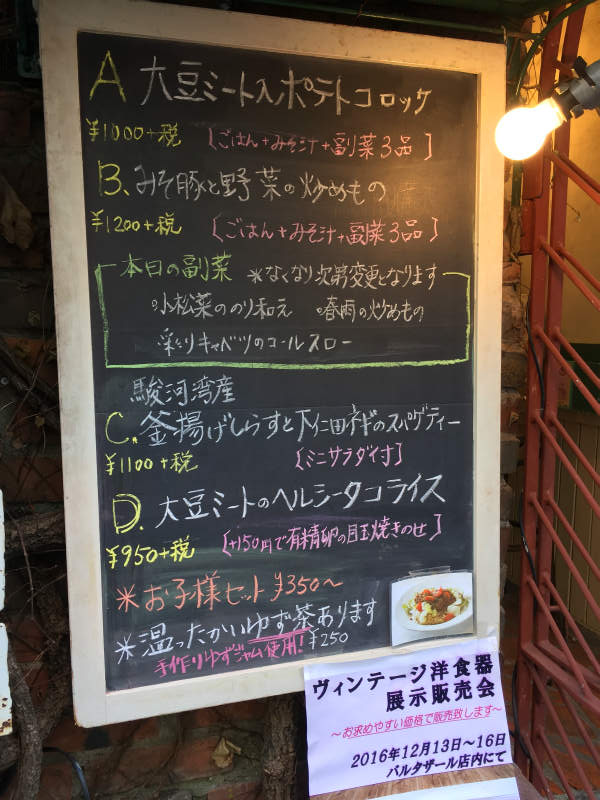 A 大豆ミート入ポテトコロッケ
¥1000+税 〔ごはん+みそ汁+副菜3品〕
B. みそ豚と野菜の炒めもの
¥1200+税 〔ごはん+みそ汁+副菜3品〕
本日の副菜 ※なくなり次第変更となります
○小松菜ののり和え ○春雨の炒めもの
彩りキャベツのコールスロー
駿河湾産
C. 釜揚げしらすと下仁田ネギのスパゲティー
¥1100+税 〔ミニサラダ付〕
D. 大豆ミートのヘルシータコライス
¥950+税 〔+150円で有精卵の目玉焼きのせ〕
※お子様セット ¥350〜
※温ったかいゆず茶あります
手作りゆずジャム使用! ¥250
ヴィンテージ洋食器
展示販売会
〜お求めやすい価格で販売致します〜
2016年12月13日〜16日
バルタザール店内にて